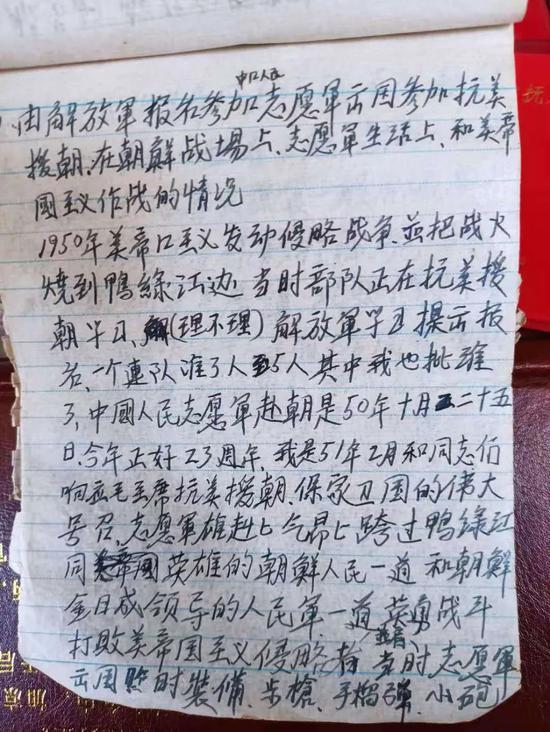 中口人民
由解放軍报名参加志愿軍出国参加抗美
援朝.在朝鮮战場上、志愿軍生活上、和美帝
國主义作战的情况
1950年美帝口主义发动侵略战争.並把战火
燒到鴨綠江边 当时部队正在抗美援
朝学习、(理不理)解放軍学习提出报
名、一个連队准了人5人其中我也批准
了,中國人民志愿軍赴朝是50年十月二十五
日.今年正好23週年,我是51年2月和同志们
响应毛主席抗美援朝、保家卫国的伟大
号召、志愿軍雄赳赳气昂昂跨过鴨綠江
同英雄的朝鮮人民一道 和朝鮮
金日成领导的人民軍一道 英勇战斗
打败美帝国主义侵略者 当时志愿軍
出国时裝備、步槍、手榴弹、小砲
抗
加